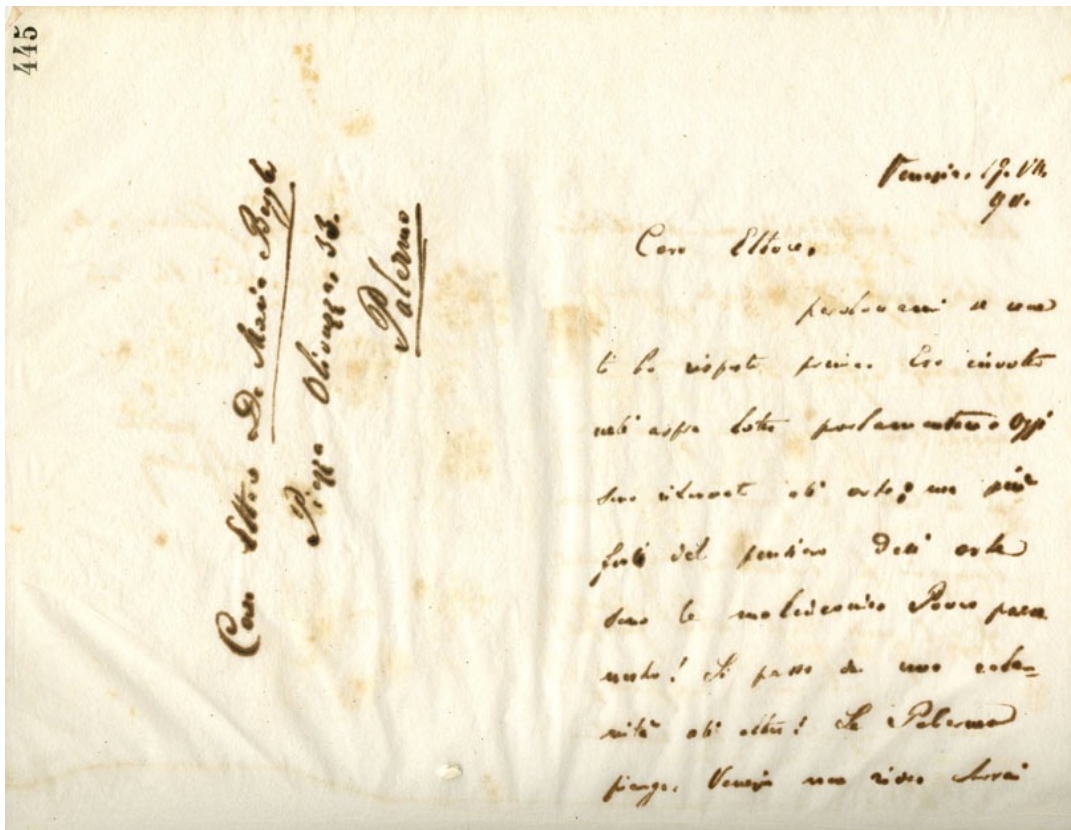 445
Caro Ettore De Maria Bergler
Piazza Olivuzza, 33.
Palermo
Venezia, 17. VII.
98.
Caro Ettore,
perdonami se non
ti ho risposto prima. Ero
nell'aspra lotta parlamentare oggi
sono all'arte; ma più
forti del pensiero dell'arte
sono le malinconie Povero paese
nostro! Si passa da una cala-
mità all'altra! Se Palermo
piange, Venezia non ride. Avrai